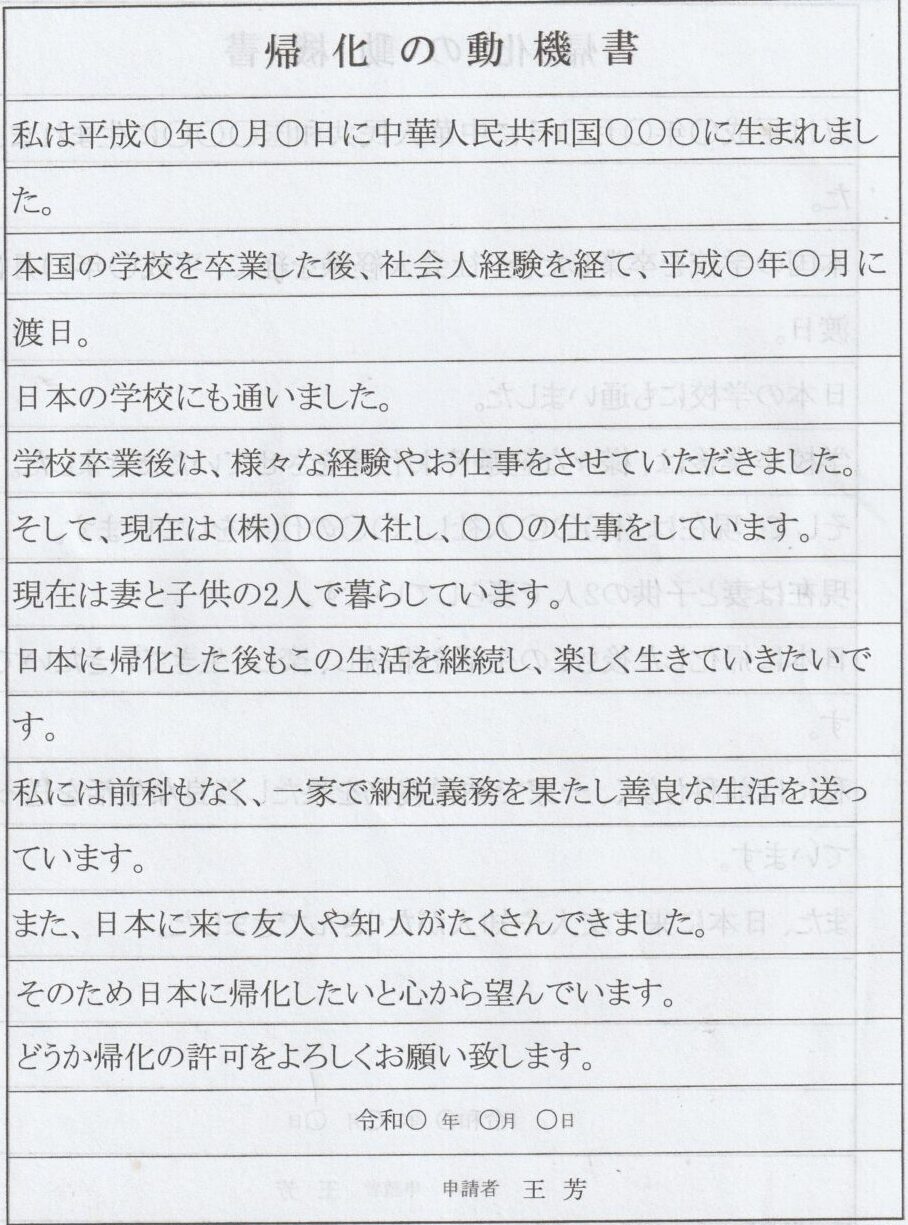 帰化の動機書
私は平成〇年〇月〇日に中華人民共和国〇〇〇に生まれまし
た。
本国の学校を卒業した後、社会人経験を経て、平成〇年〇月に
渡日。
日本の学校にも通いました。
学校卒業後は、様々な経験やお仕事をさせていただきました。
そして、現在は(株)〇〇入社し、〇〇の仕事をしています。
現在は妻と子供の2人で暮らしています。
日本に帰化した後もこの生活を継続し、楽しく生きていきたいで
す。
私には前科もなく、一家で納税義務を果たし善良な生活を送っ
ています。
また、日本に来て友人や知人がたくさんできました。
そのため日本に帰化したいと心から望んでいます。
どうか帰化の許可をよろしくお願い致します。
令和〇 年 〇月 〇日
申請者 王 芳